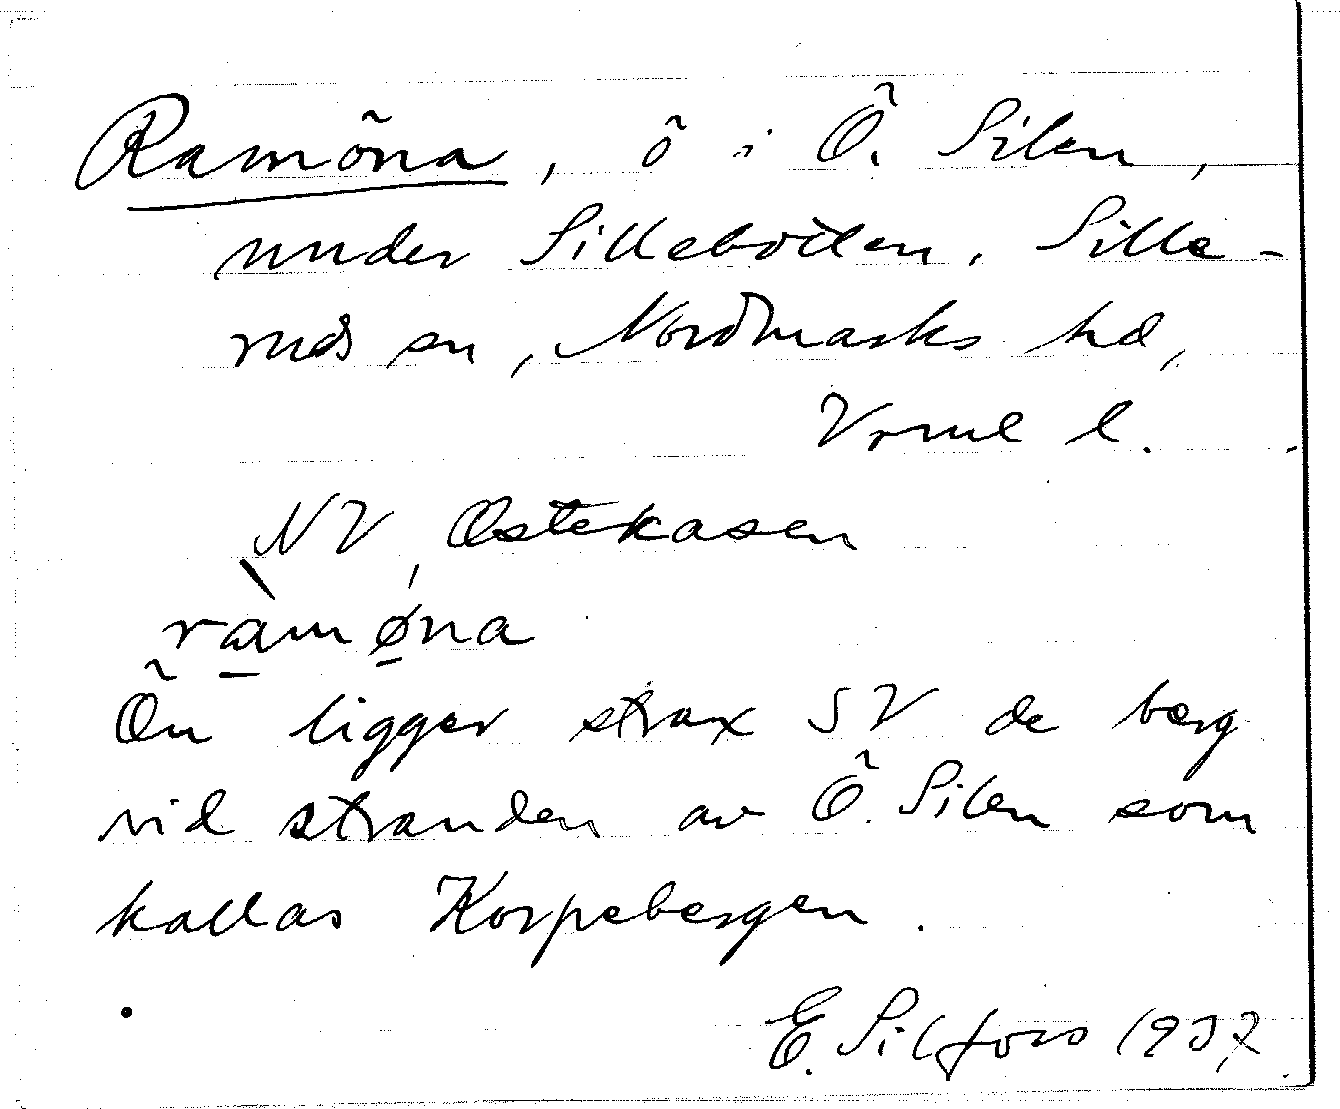 Ramöna, ö i Ö. Silen,
under Sillebotten, Sille-
ruds sn, Nordmarks hd,
Vrml l.
NV Ostekasen
ràmǿna
Ön ligger strax SV de berg
vid stranden av Ö. Silen som
kallas Korpebergen.
E. Silfors 1937